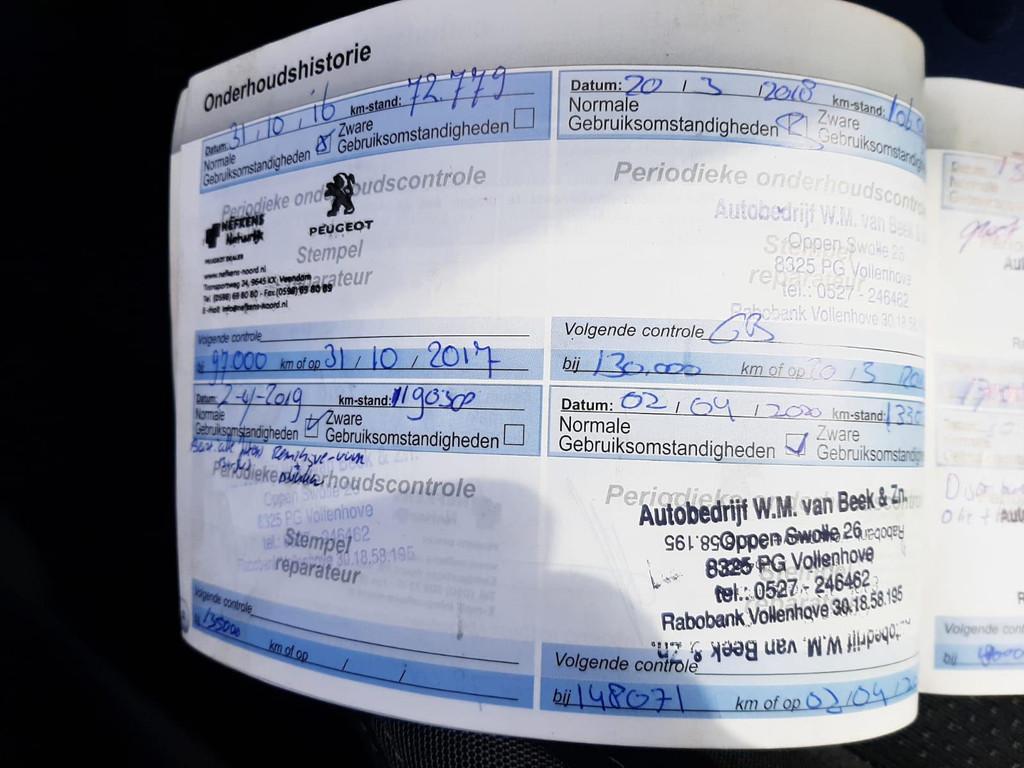 Onderhoudshistorie
Datum: 31 / 10 / 16 km-stand: 72.779
Normale
Gebruiksomstandigheden
Zware
Gebruiksomstandigheden
Periodieke onderhoudscontrole
NEFKENS
Natuurlijk
PEUGEOT
PEUGEOT DEALER
Stempel
reparateur
www.nefkens-noord.nl
Transportweg 24, 9645 KX Veendam
Tel. (0598) 69 80 80 - Fax (0598) 69 80 89
E-mail: info@nefkens-noord.nl
Volgende controle
bij 97.000 km of op 31 / 10 / 2017
Datum: 20 / 3 / 2018 km-stand:
Normale
Gebruiksomstandigheden
Zware
Periodieke onderhoudscontrol
Autobedrijf W.M. van Beek &
Oppen Swolle 26
8325 PG Vollenhove
tel.: 0527 - 246462
Rabobank Vollenhove 30.18.58.195
Stempel
reparateur
Volgende controle GB
bij 130.000 km of op 20 / 3
Datum: 2-4-2019 km-stand: 119030
Normale
Gebruiksomstandigheden
Zware
Gebruiksomstandigheden
Periodieke onderhoudscontrole
Oppen Swolle 26
8325 PG Vollenhove
tel.: 246462
30.18.58.195
Stempel
reparateur
Volgende controle
bij 135000 km of op / /
Datum: 02 / 04 / 2020 km-stand: 1330
Normale
Gebruiksomstandigheden
Zware
Gebruiksomstandigheden
Autobedrijf W.M. van Beek & Zn.
Oppen Swolle 26
8325 PG Vollenhove
tel.: 0527 - 246462
Rabobank Vollenhove 30.18.58.195
Autobedrijf W.M. van Beek & Zn.
Volgende controle
bij 148071 km of op 02 / 04 /
Volgende contro
bij